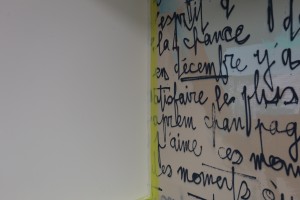 esprit
la chance
en décembre y'a
satisfaire le plus
j'aime ces mom
ces moments où